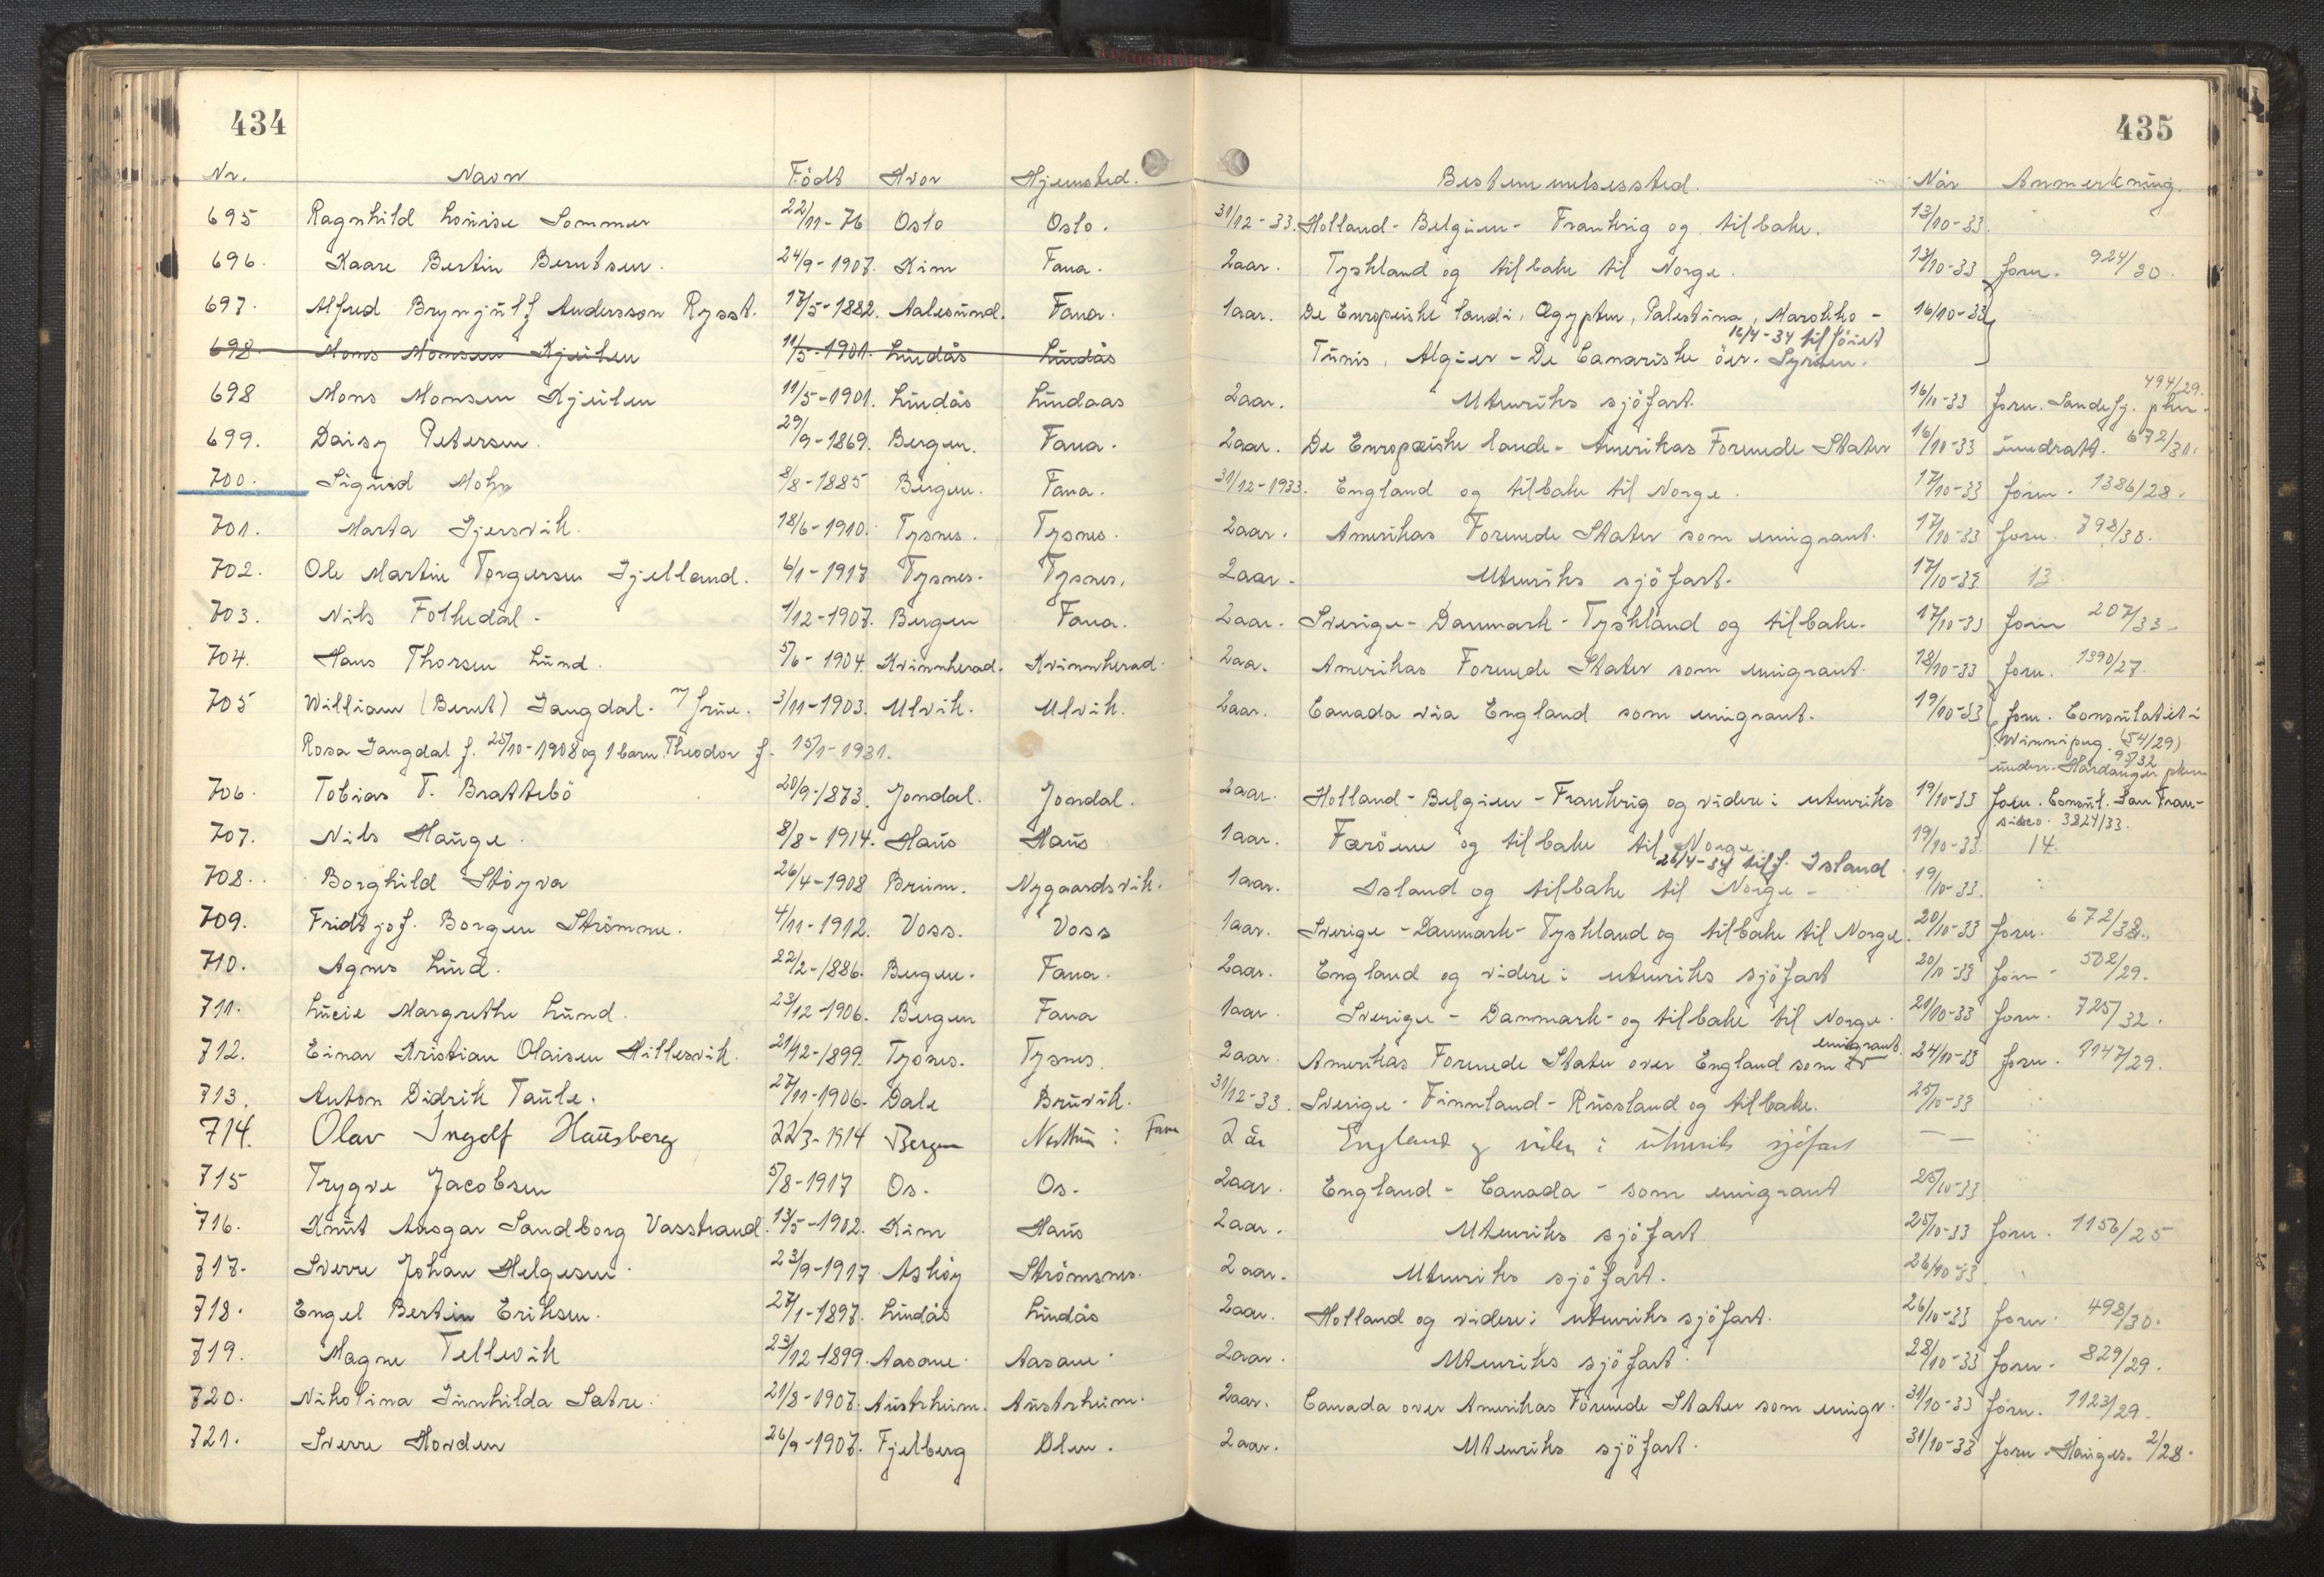 434
Nr. Navn Födt Hvor Hjemsted.
695 Ragnhild Louise Sommer 22/11-76 Oslo Oslo.
696. Kaare Bertin Berntsen. 24/9-1907. Kim Fana.
697. Alfred Brynjulf Andersson Rysst. 17/5-1882. Aalesund. Fana.
698 Mons Monsen Kjeilen 11/5-1901. Lindås Lindås
698 Mons Monsen Kjeilen 11/5-1901. Lindås Lindaas
699. Daisy Petersen. 29/9-1869. Bergen. Fana.
700. Sigurd Mohn 8/8-1885 Bergen. Fana.
701. Marta Gjersvik. 18/6-1910. Tysnes. Tysnes.
702. Ole Martin Torgersen Gjelland. 4/1-1917 Tysnes. Tysnes.
703. Nils Folkedal. 1/12-1907. Bergen Fana.
704. Hans Thorsen Lund. 5/6-1904. Kvinnherad. Kvinnherad.
705 William (Bernt) Langdal. m/ frue. 3/11-1903. Ulvik. Ulvik.
Rosa Langdal f. 25/10-1908 og 1 barn. Theodor f. 15/1-1931.
706. Tobias T. Brattebö 20/9-1873. Jondal. Jondal.
707. Nils Hauge. 8/8-1914. Haus Haus
708. Borghild Støyva 26/4-1908 Breim. Nygaardsvik.
709. Fridtjof. Borgen Strömme. 4/11-1912. Voss. Voss
710. Agnes Lund. 22/2-1886. Bergen. Fana.
711. Lucie Margrethe Lund. 23/12-1906. Bergen Fana
712. Einar Kristian Olaisen Hillesvik. 21/12-1899. Tysnes. Tysnes.
713. Anton Didrik Taule. 27/11-1906. Dale Bruvik.
714. Olav Ingolf Hausberg 22/3-1914 Bergen Nesttun i Fana
715 Trygve Jacobsen 5/8-1917 Os. Os.
716. Knut Ansgar Sandborg Vasstrand. 13/5-1902. Kim Haus
717. Sverre Johan Helgesen. 23/9-1917 Askøy Strömsnes.
718. Engel Bertin Eriksen. 27/1-1897. Lindås Lindås
719. Magne Tellevik 23/12-1899. Aasane. Aasane.
720. Nikolina Gunhilda Sætre. 21/8-1907. Austrheim. Austrheim.
721. Sverre Hovden 26/9-1907. Fjelberg Ölen.
435
Bestemmelsessted. Når Anmerkning.
31/12-33. Holland - Belgien - Frankrig og tilbake. 13/10-33.
2aar. Tyskland og tilbake til Norge. 13/10-33 forn. 924/30.
1aar. De Europeiske landi, Ægypten, Palestina, Marokko - 16/10-33
16/4-34 tilföiet
Tunis, Algier - De Canariske öer. Syrien.
494/29.
2aar. Utenriks sjöfart. 16/10-33 forn. Sandefj. pkm.
2aar. De Europæiske lande - Amerikas Forenede Stater 16/10-33 inndratt. 672/30.
31/12-1933. England og tilbake til Norge. 17/10-33 forn. 1386/28.
2aar. Amerikas Forenede Stater som emigrant. 17/10-33 forn. 798/30.
2aar. Utenriks sjöfart. 17/10-33 13
2aar. Sverige - Danmark - Tyskland og tilbake. 17/10-33 forn 207/33.
2aar. Amerikas Forenede Stater som emigrant. 18/10-33 forn. 1390/27.
2aar. Canada via England som emigrant. 19/10-33 forn. Consulatet i
Winnipeg. (54/29)
95/32
underr. Hardanger pkm
2aar. Holland - Belgien - Frankrig og videre i utenriks 19/10-33 forn. Consul. San Fran-
sisco. 3824/33.
1aar. Færöene og tilbake til Norge. 19/10-33. 14.
26/4-34 tilf. Island
1aar. Island og tilbake til Norge - 19/10-33.
1aar. Sverige - Danmark - Tyskland og tilbake til Norge. 20/10-33 forn. 672/32.
2aar. England og videre i utenriks sjöfart 20/10-33 forn. 502/29.
1aar. Sverige - Danmark - og tilbake til Norge. 21/10-33 forn. 725/32.
emigrant.
2aar. Amerikas Forenede Stater over England som 24/10-33 forn. 1147/29.
31/12-33. Sverige - Finnland - Russland og tilbake. 25/10-33
2 år England og videre i utenriks sjöfart — —
2aar. England - Canada - som emigrant 25/10-33
2aar. Utenriks sjöfart 25/10-33 forn. 1156/25
2aar. Utenriks sjöfart. 26/10-33.
2aar. Holland og videre i utenriks sjöfart. 26/10-33 forn. 498/30.
2aar. Utenriks sjöfart. 28/10-33 forn. 829/29.
2aar. Canada over Amerikas Forenede Stater som emigr. 31/10-33 forn. 1123/29.
2aar. Utenriks sjöfart. 31/10-33 forn. Hauges. 2/28.